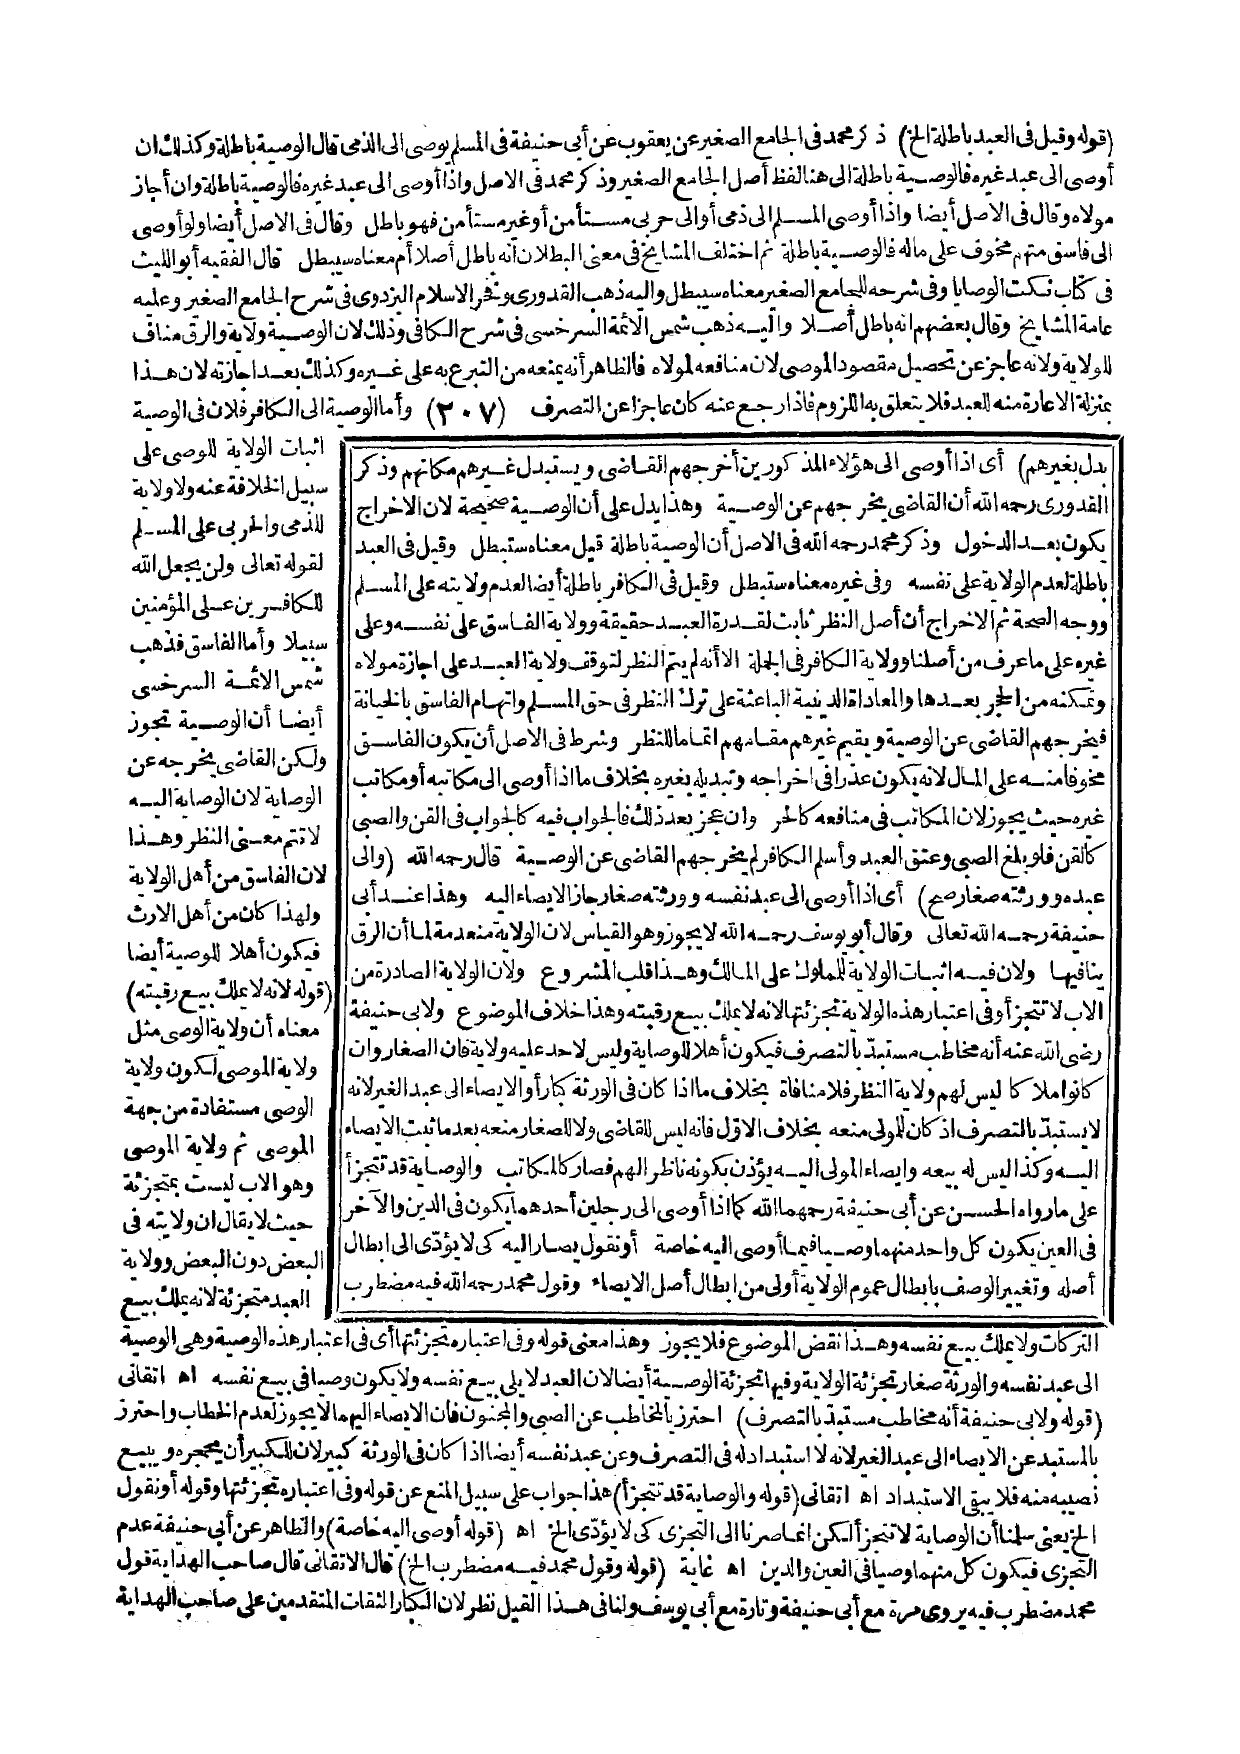 (قوله وقيل في العبد باطلة الخ) ذكر محمد في الجامع الصغير عن يعقوب عن أبي حنيفة في المسلم يوصى الى الذمى قال الوصية باطلة وكذلك ان
أوصى الى عبد غيره فالوصية باطلة الى هنا لفظ أصل الجامع الصغير وذكر محمد في الاصل واذا أوصى الى عبد غيره فالوصية باطلة وان أجاز
مولاه وقال في الاصل أيضا واذا أوصى المسلم الى ذمى أو الى حربى مستأمن أو غير مستأمن فهو باطل وقال في الاصل أيضا ولو أوصى
الى فاسق متهم مخوف على ماله فالوصية باطلة ثم اختلف المشايخ في معنى البطلان أنه باطل أصلا أم معناه سيبطل قال الفقيه أبو الليث
في كتاب نكت الوصايا وفى شرحه للجامع الصغير معناه سيبطل واليه ذهب القدورى وفخر الاسلام البزدوى في شرح الجامع الصغير وعليه
عامة المشايخ وقال بعضهم انه باطل أصلا واليه ذهب شمس الأئمة السرخسى في شرح الكافى وذلك لان الوصية ولاية والرق مناف
للولاية ولانه عاجز عن تحصيل مقصود الموصى لان منافعه لمولاه فالظاهر أنه يمنعه من التبرع به على غيره وكذلك بعد اجازته لان هذا
بمنزلة الاعارة منه للعبد فلا يتعلق به اللزوم فاذا رجع عنه كان عاجزا عن التصرف (٢٠٧) وأما الوصية الى الكافر فلان في الوصية
اثبات الولاية للوصى على
سبيل الخلافة عنه ولا ولاية
للذمى والحربى على المسلم
لقوله تعالى ولن يجعل الله
للكافرين على المؤمنين
سبيلا وأما الفاسق فذهب
شمس الأئمة السرخسى
أيضا أن الوصية تجوز
ولكن القاضى يخرجه عن
الوصاية لان الوصاية اليه
لا تتم معنى النظر وهذا
لان الفاسق من أهل الولاية
ولهذا كان من أهل الارث
فيكون أهلا للوصية أيضا
(قوله لانه لا يملك بيع رقبته)
معناه أن ولاية الوصى مثل
ولاية الموصى لكون ولاية
الوصى مستفادة من جهة
الموصى ثم ولاية الموصى
وهو الاب ليست بمتجزئة
حيث لا يقال ان ولايته في
البعض دون البعض وولاية
العبد متجزئة لانه يملك بيع
بدل بغيرهم) أى اذا أوصى الى هؤلاء المذكورين أخرجهم القاضى ويستبدل غيرهم مكانهم وذكر
القدورى رحمه الله أن القاضى يخرجهم عن الوصية وهذا يدل على أن الوصية صحيحة لان الاخراج
يكون بعد الدخول وذكر محمد رحمه الله في الاصل أن الوصية باطلة قيل معناه ستبطل وقيل في العبد
باطلة لعدم الولاية على نفسه وفى غيره معناه ستبطل وقيل في الكافر باطلة أيضا لعدم ولايته على المسلم
ووجه الصحة ثم الاخراج أن أصل النظر ثابت لقدرة العبد حقيقة وولاية الفاسق على نفسه وعلى
غيره على ما عرف من أصلنا وولاية الكافر في الجملة الا أنه لم يتم النظر لتوقف ولاية العبد على اجازة مولاه
وتمكنه من الحجر بعدها والمعاداة الدينية الباعثة على ترك النظر في حق المسلم واتهام الفاسق بالخيانة
فيخرجهم القاضى عن الوصية ويقيم غيرهم مقامهم اتماما للنظر وشرط في الاصل أن يكون الفاسق
مخوفا منه على المال لانه يكون عذرا في اخراجه وتبديله بغيره بخلاف ما اذا أوصى الى مكاتبه أو مكاتب
غيره حيث يجوز لان المكاتب في منافعه كالحر وان عجز بعد ذلك فالجواب فيه كالجواب في القن والصبى
كالقن فلو بلغ الصبى وعتق العبد وأسلم الكافر لم يخرجهم القاضى عن الوصية قال رحمه الله (والى
عبده وورثته صغار صح) أى اذا أوصى الى عبد نفسه وورثته صغار جاز الايصاء اليه وهذا عند أبى
حنيفة رحمه الله تعالى وقال أبو يوسف رحمه الله لا يجوز وهو القياس لان الولاية منعدمة لما أن الرق
ينافيها ولان فيه اثبات الولاية للمملوك على المالك وهذا قلب المشروع ولان الولاية الصادرة من
الاب لا تتجزأ وفى اعتبار هذه الولاية تجزئتها لانه لا يملك بيع رقبته وهذا خلاف الموضوع ولابى حنيفة
رضى الله عنه أنه مخاطب مستبد بالتصرف فيكون أهلا للوصاية وليس لاحد عليه ولاية فان الصغار وان
كانوا ملاكا ليس لهم ولاية النظر فلا منافاة بخلاف ما اذا كان في الورثة كبار أو الايصاء الى عبد الغير لانه
لا يستبد بالتصرف اذ كان للمولى منعه بخلاف الاول فانه ليس للقاضى ولا للصغار منعه بعد ما ثبت الايصاء
اليه وكذا ليس له بيعه وايصاء المولى اليه يؤذن بكونه ناظرا لهم فصار كالمكاتب والوصاية قد تتجزأ
على ما رواه الحسن عن أبى حنيفة رحمهما الله كما اذا أوصى الى رجلين أحدهما يكون في الدين والآخر
في العين يكون كل واحد منهما وصيا فيما أوصى اليه خاصة أو نقول يصار اليه كى لا يؤدى الى ابطال
أصله وتغيير الوصف بابطال عموم الولاية أولى من ابطال أصل الايصاء وقول محمد رحمه الله فيه مضطرب
التركات ولا يملك بيع نفسه وهذا نقض الموضوع فلا يجوز وهذا معنى قوله وفى اعتباره تجزئتها أى في اعتبار هذه الوصية وهى الوصية
الى عبد نفسه والورثة صغار تجزئة الولاية وفيها تجزئة الوصية أيضا لان العبد لا يلى بيع نفسه ولا يكون وصيا في بيع نفسه اه اتقانى
(قوله ولابى حنيفة أنه مخاطب مستبد بالتصرف) احترز بالمخاطب عن الصبى والمجنون فان الايصاء اليهما لا يجوز لعدم الخطاب واحترز
بالمستبد عن الايصاء الى عبد الغير لانه لا استبداد له في التصرف وعن عبد نفسه أيضا اذا كان في الورثة كبير لان للكبير أن يحجره ويبيع
نصيبه منه فلا يبقى الاستبداد اه اتقانى (قوله والوصاية قد تتجزأ) هذا جواب على سبيل المنع عن قوله وفى اعتباره تجزئتها وقوله أو نقول
الخ يعنى سلمنا أن الوصاية لا تتجزأ لكن انما صرنا الى التجزى كى لا يؤدى الخ اه (قوله أوصى اليه خاصة) والظاهر عن أبى حنيفة عدم
التجزى فيكون كل منهما وصيا في العين والدين اه غاية (قوله وقول محمد فيه مضطرب الخ) قال الاتقانى قال صاحب الهداية قول
محمد مضطرب فيه يروى مرة مع أبى حنيفة وتارة مع أبى يوسف ولنا في هذا القيل نظر لان الكبار الثقات المتقدمين على صاحب الهداية